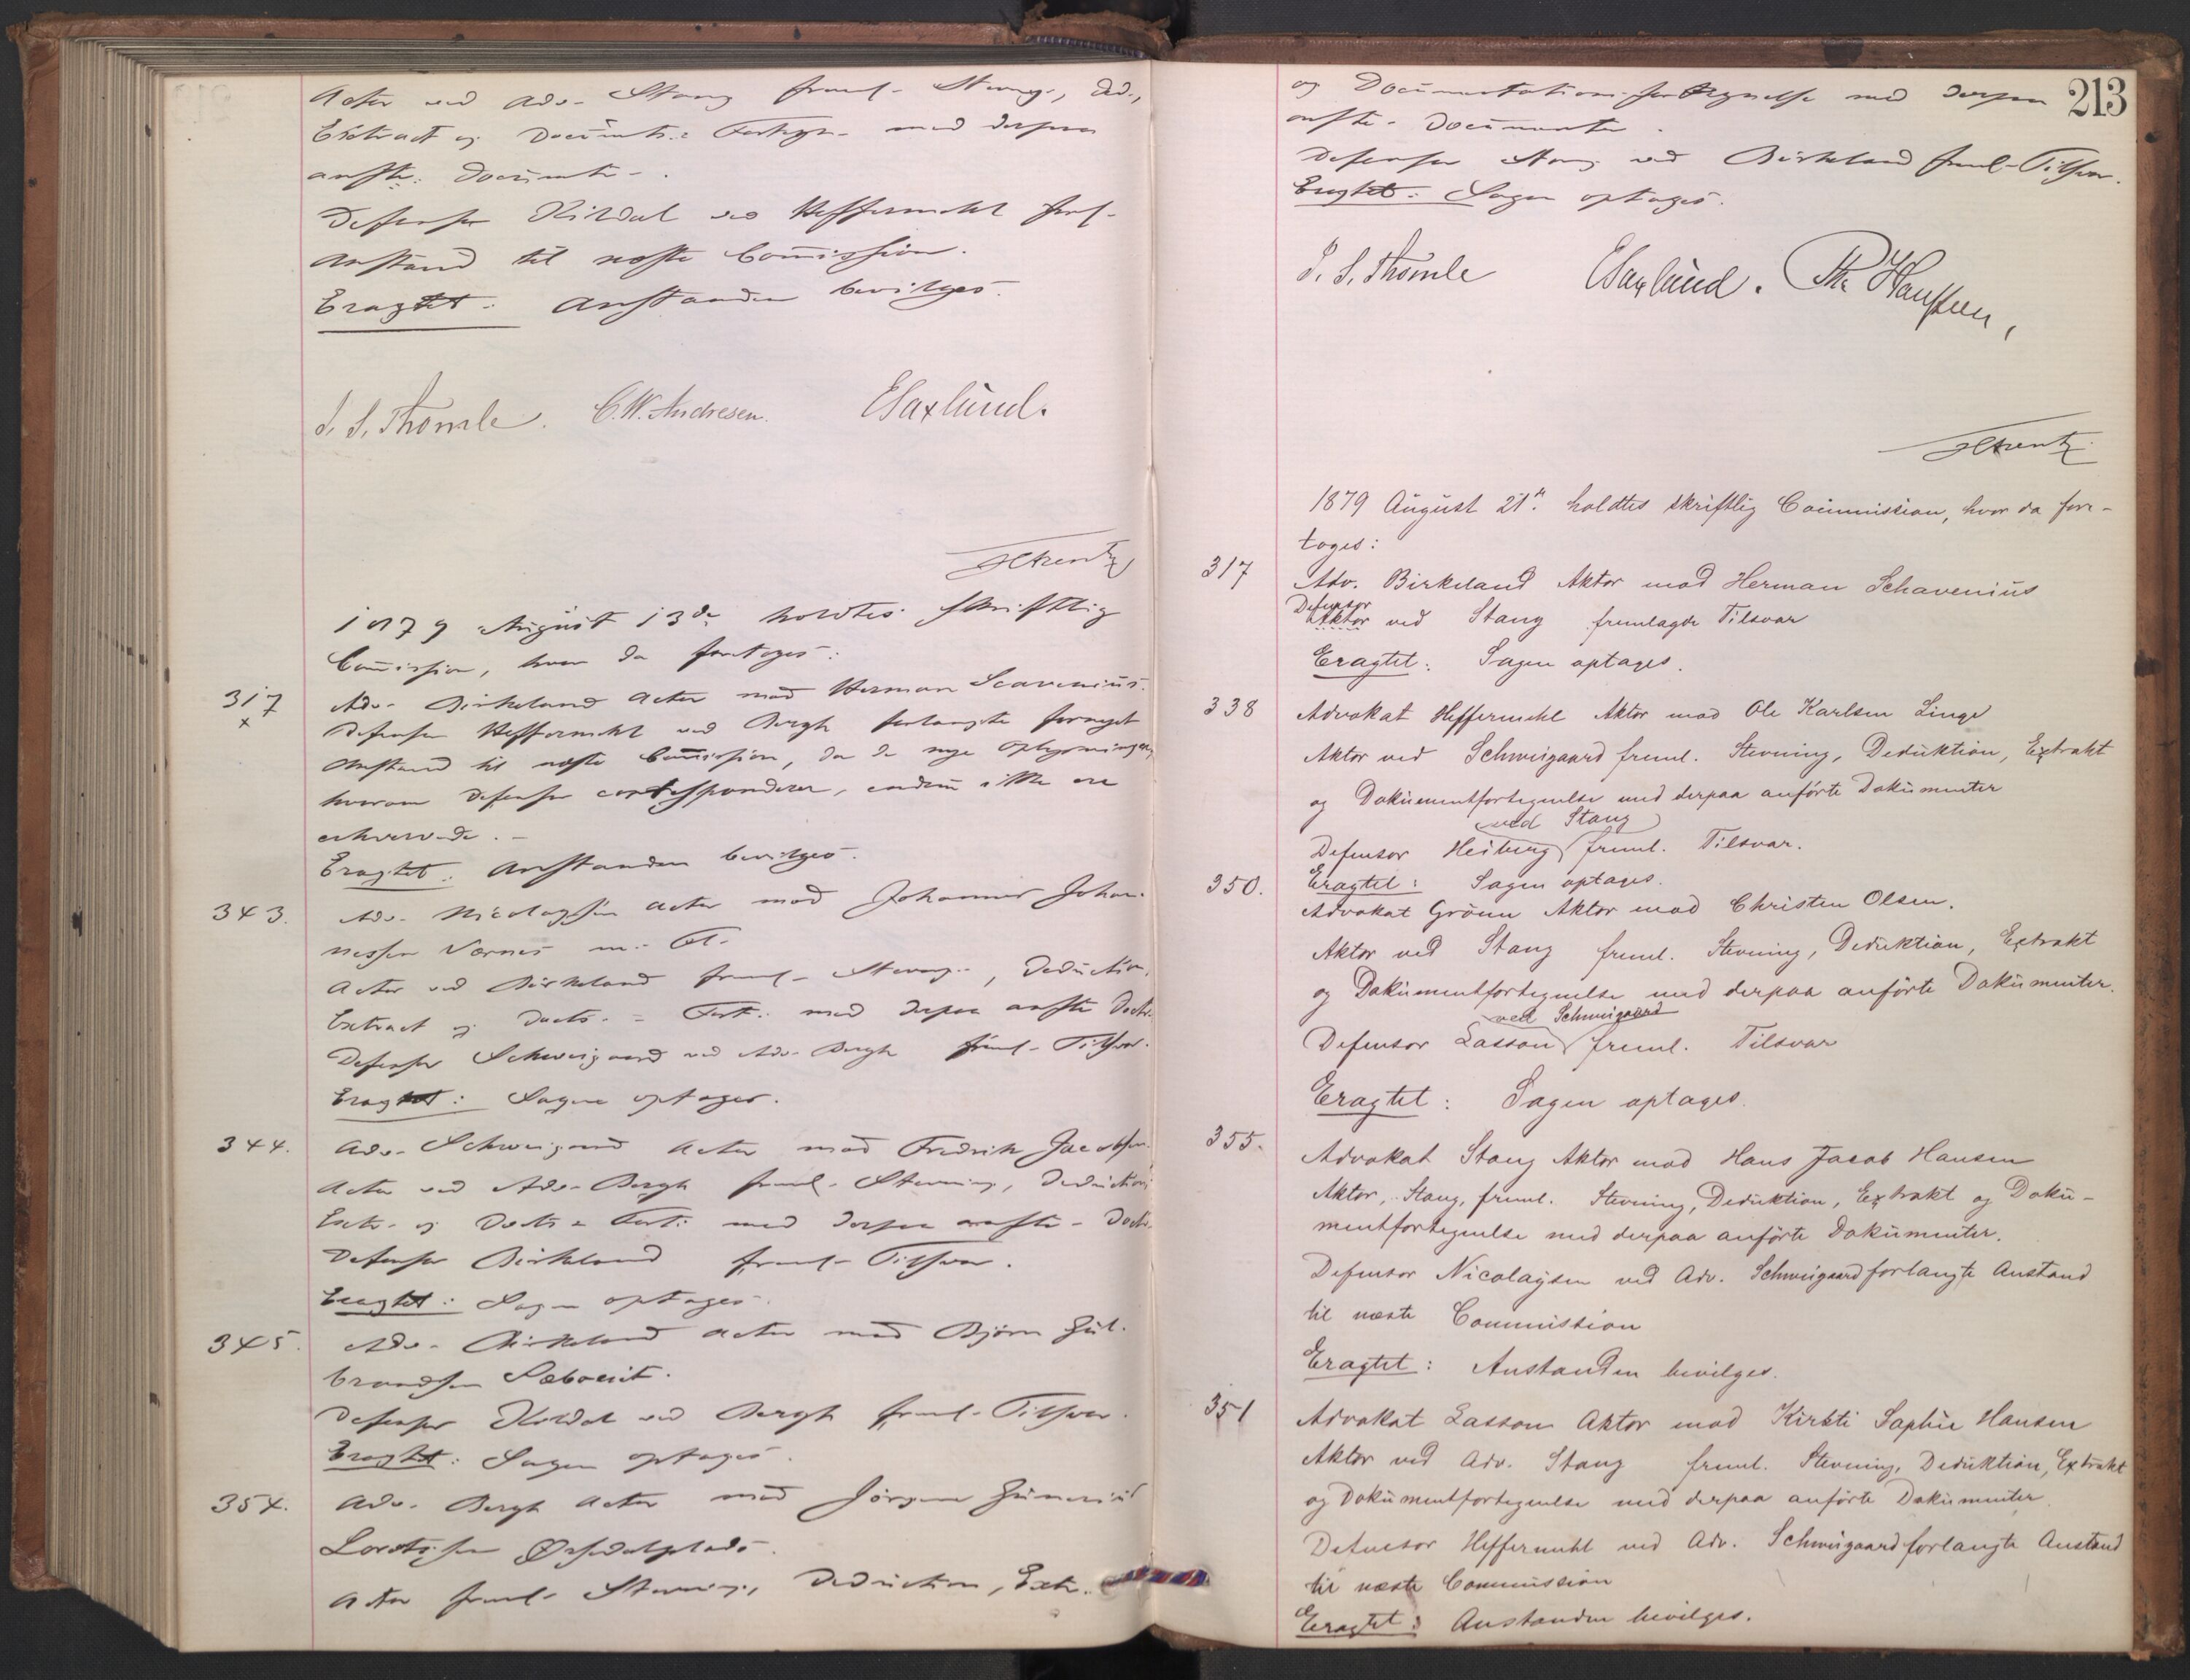 Actor ved Adv. Stang freml. Stevng., Ded.,
Extract og Documts.= Fortegn. med derpaa
anførte Documenter.
Defensor Kildal ved Heffermehl freml.
Anstand til næste Commission.
Eragtet: Anstanden bevilges.
I. S. Thomle. C. W. Andresen. ESaxlund.
1879 August 13de holdtes skriftlig
Commission, hvor da foretoges:
317
x
Adv. Birkeland Actor mod Herman Scavenius.
Defensor Heffermehl ved Bergh forlangte fornyet
Anstand til næste Commission, da de nye Oplysninger,
hvorom Defensor corresponderer, endnu ikke ere
erhvervede.-
Eragtet: Anstanden bevilges.
343.
Adv. Nicolaysen Actor mod Johannes Johan-
nessen Værnes m. Fl.
Actor ved Birkeland freml. Stevng., Deduction,
Extract og Docts.= Fort. med derpaa anførte Docts.
Defensor Schweigaard ved Adv. Bergh freml. Tilsvar.
Eragtet: Sagen optages.
344.
Adv. Schweigaard Actor mod Fredrik Jacobsen.
Actor ved Adv. Bergh freml. Stevning, Deduction,
Extr. og Docts.= Fort. med derpaa anførte Docts.
Defensor Birkeland freml. Tilsvar.
Eragtet: Sagen optages.
345.
Adv. Birkeland Actor mod Bjørn Gul-
brandsen
Defensor Kildal ved Bergh freml. Tilsvar.
Eragtet: Sagen optages.
354.
Adv. Bergh Actor mod Jørgen
Actor freml. Stevning, Deduction, Extr.
213
og Documentationsfortegnelse med derpaa
anførte Documenter.
Defensor Stang ved Birkeland freml. Tilsvar.
Eragtet: Sagen optages.
I. S. Thomle ESaxlund. Th. Hanssen,
1879 August 21de holdtes skriftlig Commission, hvor da fore-
toges:
317
Adv. Birkeland Aktor mod Herman Schavenius
Defensor
Aktor ved Stang fremlagde Tilsvar
Eragtet: Sagen optages.
338
Advokat Heffermehl Aktor mod Ole Karlsen Linge
Aktor ved Schweigaard freml. Stevning, Deduktion, Extrakt
og Dokumentfortegnelse med derpaa anførte Dokumenter
ved Stang
Defensor Heiberg freml. Tilsvar.
350.
Eragtet: Sagen optages.
Advokat Grönn Aktor mod Christen Olsen.
Aktor ved Stang freml. Stevning, Deduktion, Extrakt
og Dokumentfortegnelse med derpaa anførte Dokumenter.
ved Schweigaard
Defensor Lasson freml. Tilsvar
Eragtet: Sagen optages.
355.
Advokat Stang Aktor mod Hans Jacob Hansen
Aktor, Stang, freml. Stevning, Deduktion, Extrakt og Doku-
mentfortegnelse med derpaa anførte Dokumenter.
Defensor Nicolaysen ved Adv. Schweigaard forlangte Anstand
til næste Commission
Eragtet: Anstanden bevilges.
351
Advokat Lasson Aktor mod Kirsti Sophie Hansen
Aktor ved Adv. Stang freml. Stevning, Deduktion, Extrakt
og Dokumentfortegnelse med derpaa anførte Dokumenter.
Defensor Heffermehl ved Adv. Schweigaard forlangte Anstand
til næste Commission
Eragtet: Anstanden bevilges.